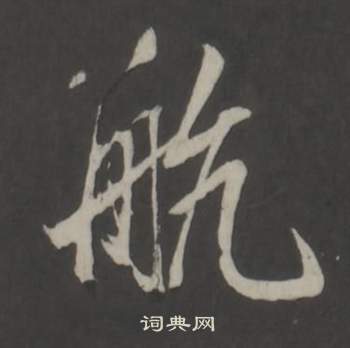 航
词典网